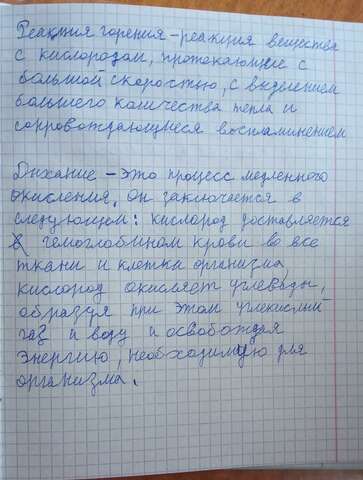 Реакция горения – реакция вещества
с кислородом, протекающие с
большой скоростью, с выделением
большего количества тепла и
сопровождающиеся воспламинением
Дыхание – это процесс медленного
окисления, он заключается в
следующем: кислород доставляется
гемоглобином крови во все
ткани и клетки организма,
кислород окисляет углеводы,
образуя при этом углекислый
газ и воду и освобождая
энергию, необходимую для
организма.